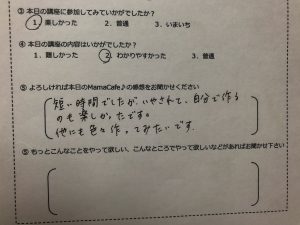 ③ 本日の講座に参加してみていかがでしたか？
1. 楽しかった 2. 普通 3. いまいち
④ 本日の講座の内容はいかがでしたか？
1. 難しかった 2. わかりやすかった 3. 普通
⑤ よろしければ本日のMamaCafe♪の感想をお聞かせください
短い時間でしたが、いやされて、自分で作る
のも楽しかったです。
他にも色々作ってみたいです。
⑤ もっとこんなことをやって欲しい、こんなところでやって欲しいなどがあればお聞かせ下さい